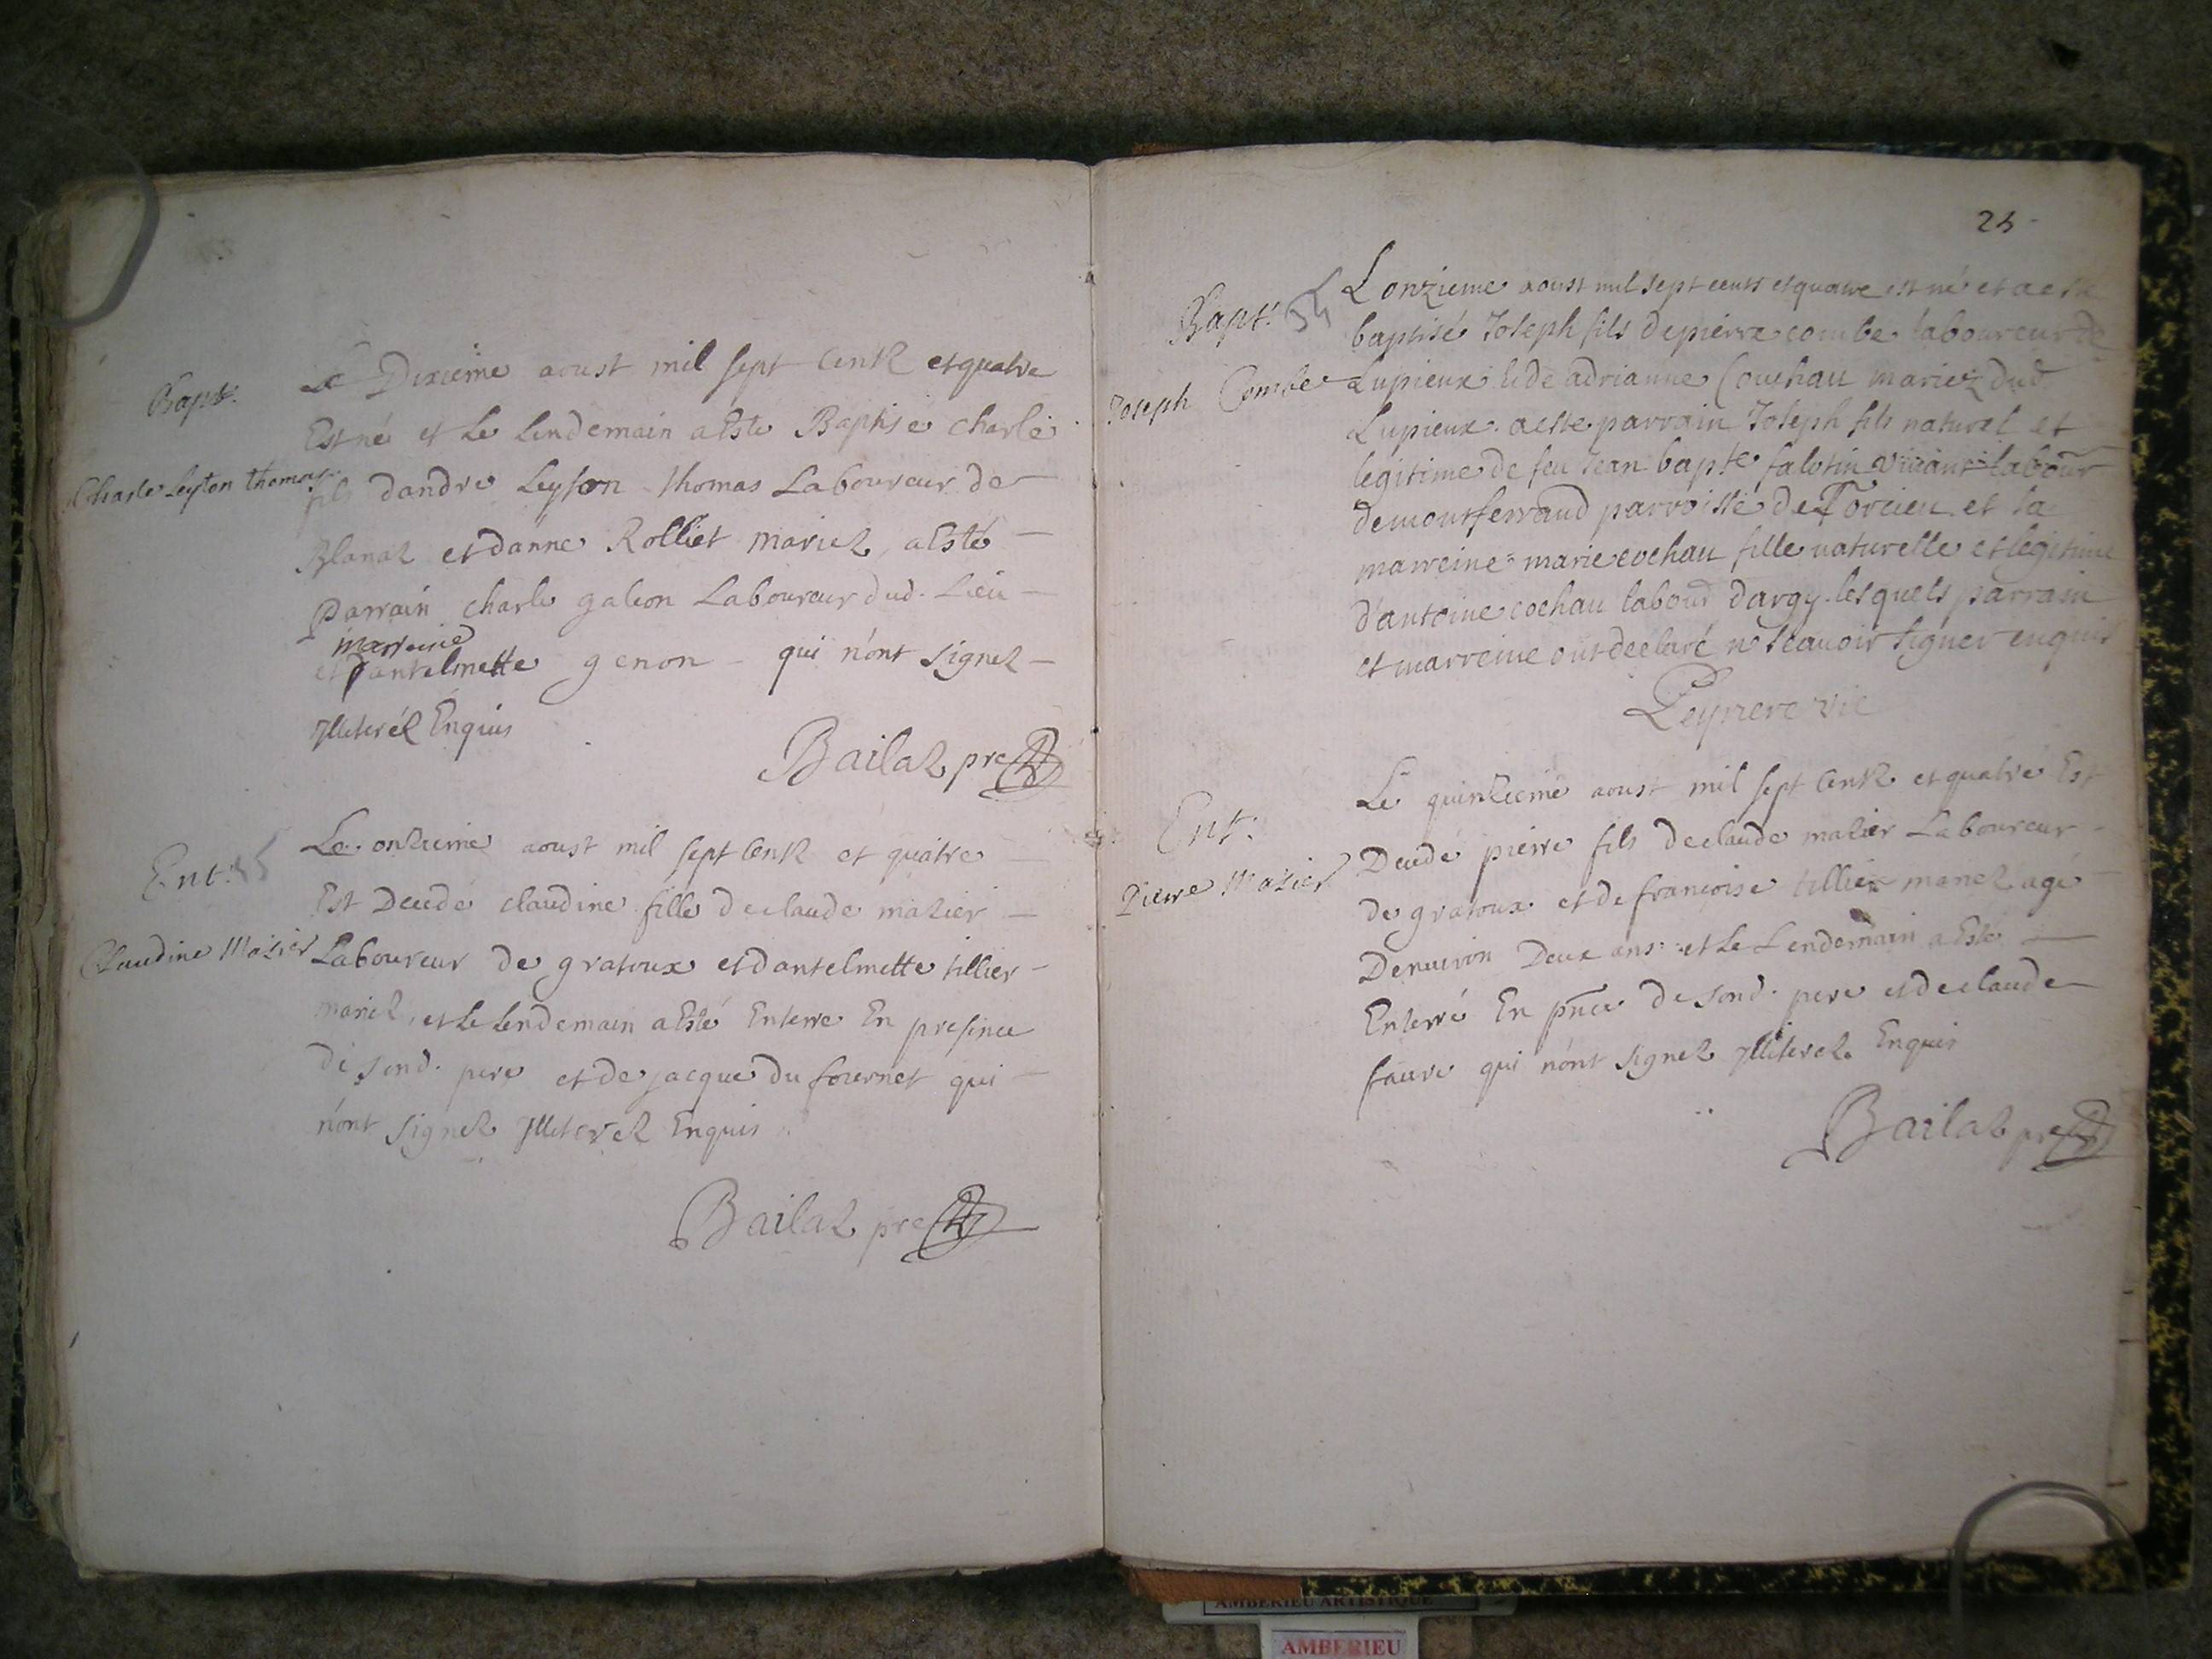 Bapt.
Charle Leyton thomas
Le Dixieme aoust mil sept Centz et quatre
Est né et Le Lendemain a Esté Baptisé charle
fils dandre Leyson thomas Laboureur de
Blanaz et danne Rolliet mariez, a Esté
Parrain charle galion Laboureur dud. Lieu
marreine
et dantelmette genon qui n'ont signez
Illiteréz Enquis
Bailaz pre
Ent.
Claudine Mazier
Le onzieme aoust mil sept Centz et quatre
Est Decedé claudine fille de claude mazier
Laboureur de gratoux et dantelmette tillier
mariez, et Le Lendemain a Esté Enterre En presence
de sond. pere et de jacque du fournet qui
n'ont signez Illiterez Enquis
Bailaz pre
25
Bapt. 34
Joseph Combe
Lonzieme aoust mil sept cents et quatre est né et a esté
baptisé Joseph fils de pierre combe laboureur de
Lupieux et de adrianne Couchau mariez dud
Lupieux. a esté parrain Joseph fils naturel et
legitime de feu Jean bapte falotin vivant labour
de montferrand parroisse de Torcieu et la
marreine marie cochau fille naturelle et legitime
d'antoine cochau labour d'argy. lesquels parrain
et marreine ont declaré ne scavoir signer enquis
Leyniere vic
Ent.
Pierre Mazier
Le quinzieme aoust mil sept Centz et quatre Est
Decedé pierre fils de claude mazier Laboureur
de gratoux et de françoise tillier mariez agé
Denuiron Deux ans et Le Lendemain a Esté
Enterré En pnce de sond. pere et de claude
faure qui n'ont signez Illiterez Enquis
Bailaz pre
AMBERIEU ARTISTIQUE
AMBERIEU